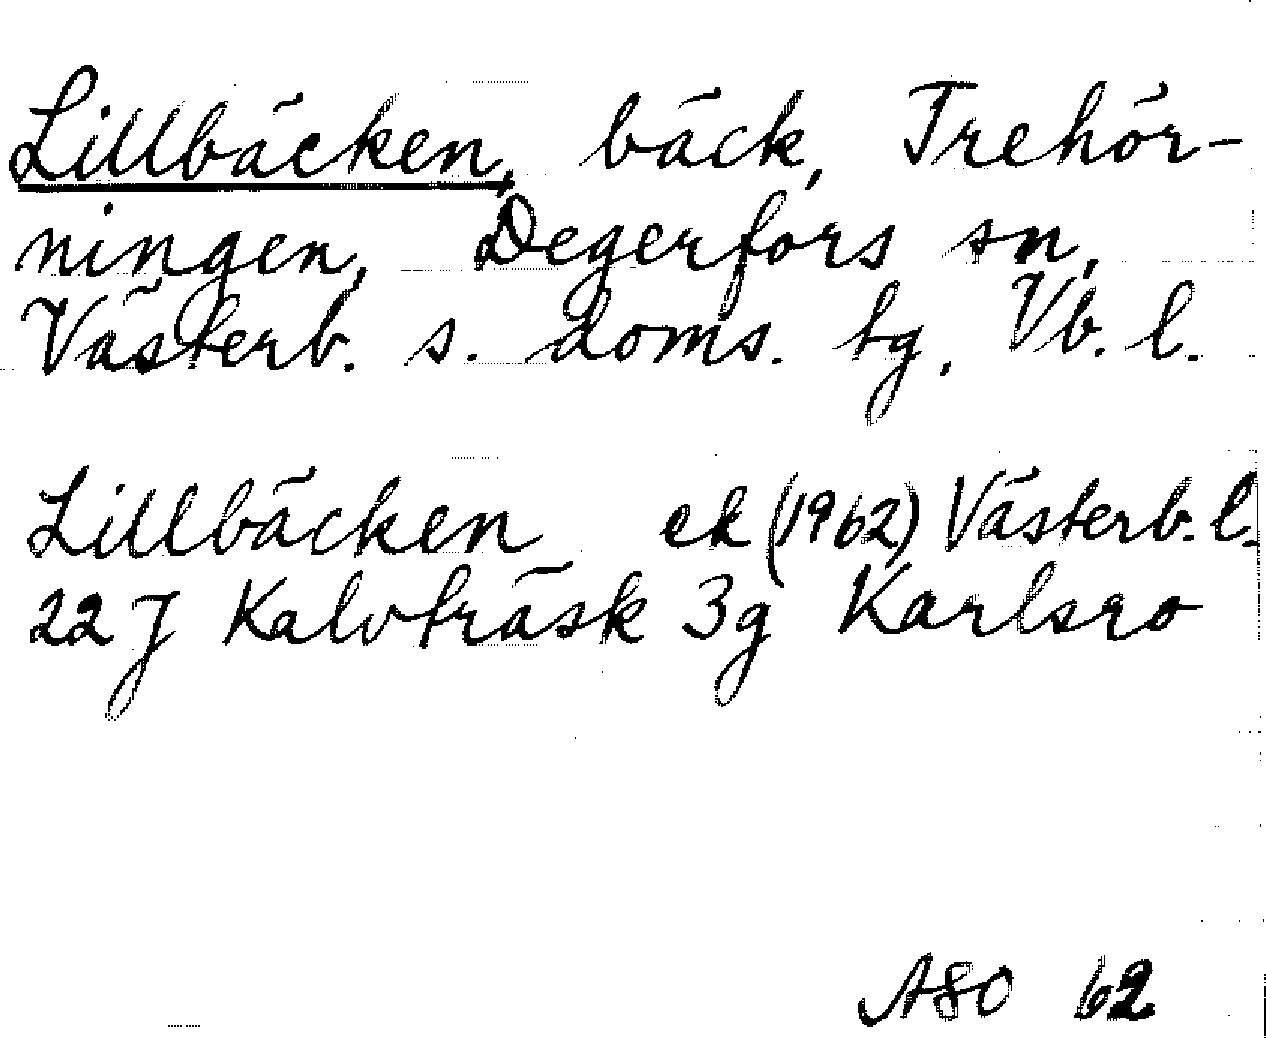 Lillbäcken, bäck, Trehör-
ningen, Degerfors sn,
Västerb. s. doms. tg, Vb. l.
Lillbäcken ek (1962) Västerb. l.
22 J Kalvträsk 3g Karlsro
ASO 62